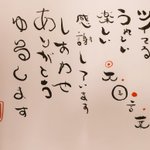 ツイてる
うれしい
楽しい
感謝しています
しあわせ
ありがとう
ゆるします